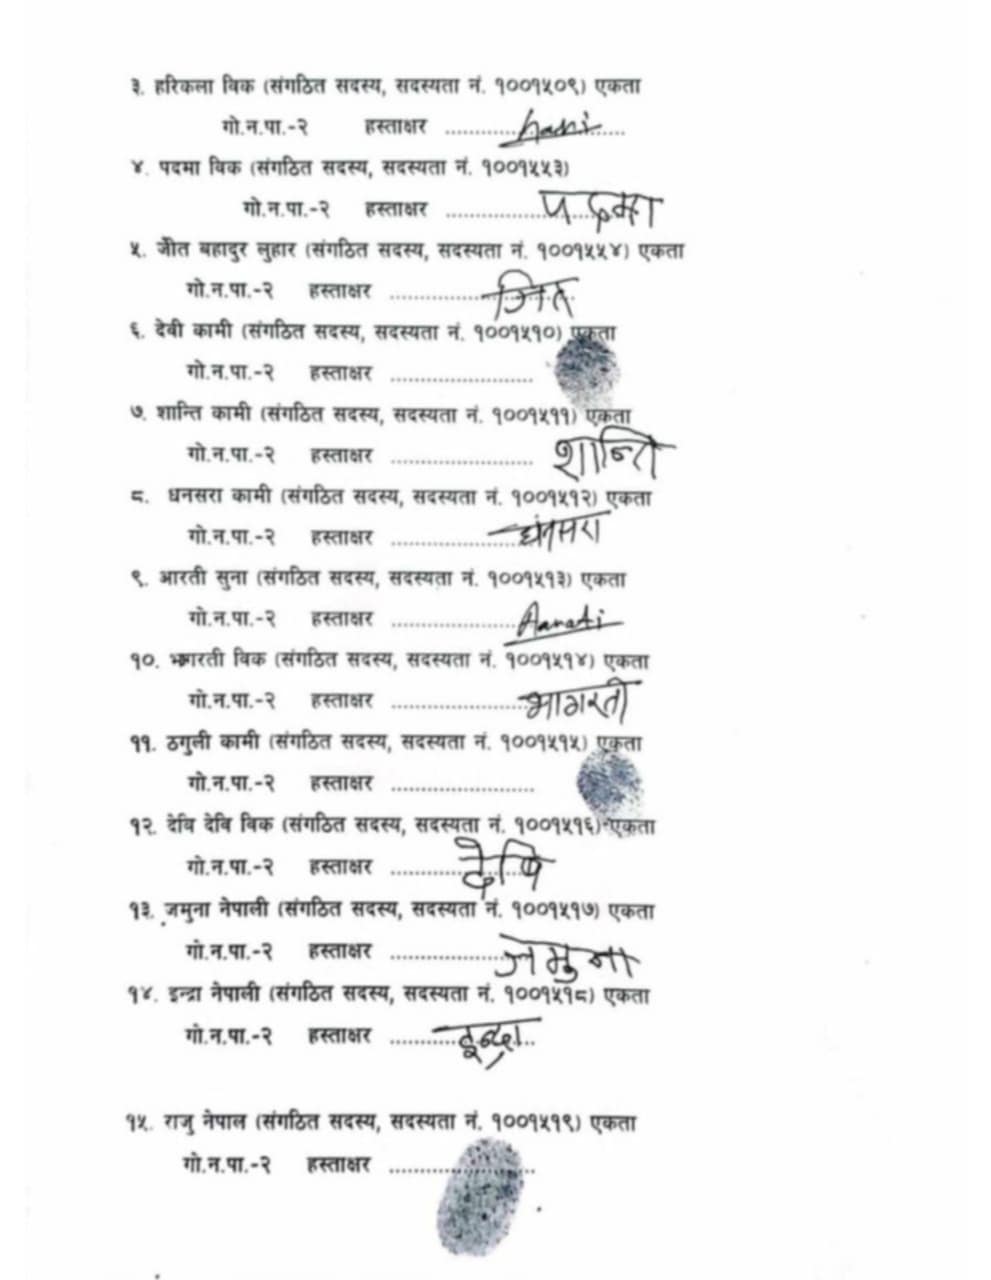 ३. हरिकला विक (संगठित सदस्य, सदस्यता नं. १००१५०९) एकता
गो.न.पा.-२ हस्ताक्षर ....................... hari
४. पदमा विक (संगठित सदस्य, सदस्यता नं. १००१५५३)
गो.न.पा.-२ हस्ताक्षर ....................... पदमा
५. जीत बहादुर लुहार (संगठित सदस्य, सदस्यता नं. १००१५५४) एकता
गो.न.पा.-२ हस्ताक्षर ....................... जित
६. देवी कामी (संगठित सदस्य, सदस्यता नं. १००१५१०) एकता
गो.न.पा.-२ हस्ताक्षर .......................
७. शान्ति कामी (संगठित सदस्य, सदस्यता नं. १००१५११) एकता
गो.न.पा.-२ हस्ताक्षर ....................... शान्ति
८. धनसरा कामी (संगठित सदस्य, सदस्यता नं. १००१५१२) एकता
गो.न.पा.-२ हस्ताक्षर ....................... धंनसरा
९. आरती सुना (संगठित सदस्य, सदस्यता नं. १००१५१३) एकता
गो.न.पा.-२ हस्ताक्षर ....................... Aarati
१०. भागरती विक (संगठित सदस्य, सदस्यता नं. १००१५१४) एकता
गो.न.पा.-२ हस्ताक्षर ....................... भागरती
११. ठगुली कामी (संगठित सदस्य, सदस्यता नं. १००१५१५) एकता
गो.न.पा.-२ हस्ताक्षर .......................
१२. देवि देवि विक (संगठित सदस्य, सदस्यता नं. १००१५१६) एकता
गो.न.पा.-२ हस्ताक्षर ....................... देवि
१३. जमुना नेपाली (संगठित सदस्य, सदस्यता नं. १००१५१७) एकता
गो.न.पा.-२ हस्ताक्षर ....................... जमुना
१४. इन्द्रा नेपाली (संगठित सदस्य, सदस्यता नं. १००१५१८) एकता
गो.न.पा.-२ हस्ताक्षर ....................... इन्द्रा
१५. राजु नेपाल (संगठित सदस्य, सदस्यता नं. १००१५१९) एकता
गो.न.पा.-२ हस्ताक्षर .......................